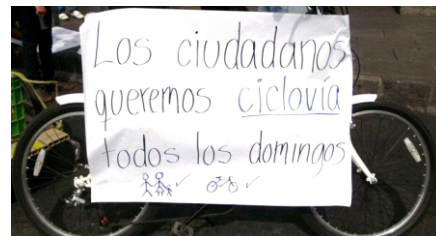 Los ciudadanos
queremos ciclovía
todos los domingos